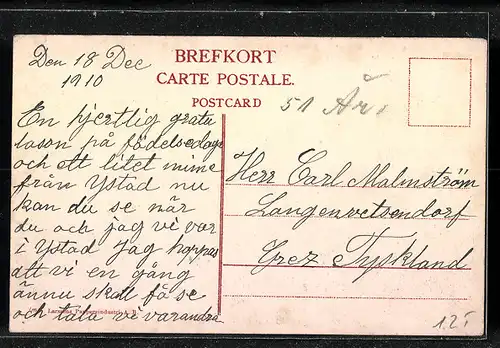 Den 18 Dec
1910
BREFKORT
CARTE POSTALE.
POSTCARD
51 År.
En hjertlig gratu
lason på födelsedage
och ett litet minne
från Ystad nu
kan du se när
du och jag vi var
i Ystad Jag hoppas
att vi en gång
ännu skall få se
och tala ve varandra
Herr Carl Malmström
Langenwetsendorf
Grez Tyskland
1.2 T